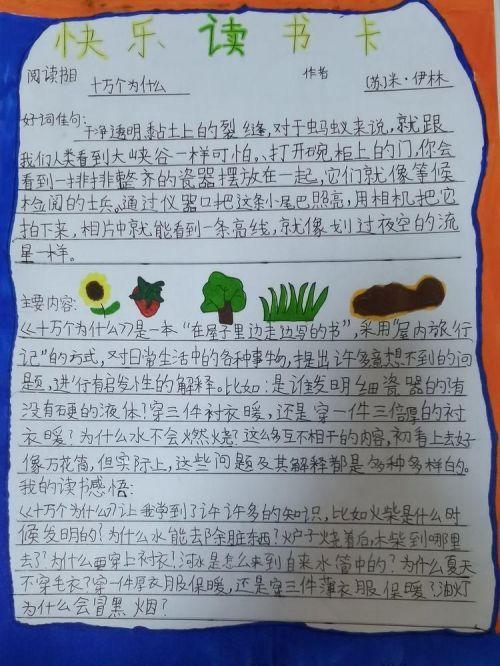 快乐读书卡
阅读书目 十万个为什么 作者 (苏)米·伊林
好词佳句: 干净透明、黏土上的裂缝,对于蚂蚁来说,就跟
我们人类看到大峡谷一样可怕。、打开碗柜上的门,你会
看到一排排整齐的瓷器摆放在一起,它们就像等候
检阅的士兵。通过仪器口把这条小尾巴照亮,用相机把它
拍下来,相片中就能看到一条亮线,就像划过夜空的流
星一样。
主要内容:
《十万个为什么》是一本“在屋子里边走边写的书”,采用“屋内旅行
记”的方式,对日常生活中的各种事物,提出许多意想不到的问
题,进行有启发性的解释。比如:是谁发明细瓷器的!有
没有硬的液体!穿三件衬衣暖,还是穿一件三倍厚的衬
衣暖?为什么水不会燃烧?这么多互不相干的内容,初看上去好
像万花筒,但实际上,这些问题及其解释都是多种多样的。
我的读书感悟:
《十万个为什么》让我学到了许许多多的知识,比如火柴是什么时
候发明的?为什么水能去除脏东西?炉子烧着后,木柴到哪里
去了?为什么要穿上衬衣!河水是怎么来到自来水管中的?为什么夏天
不穿毛衣?穿一件厚衣服保暖,还是穿三件薄衣服保暖?油灯
为什么会冒黑烟?